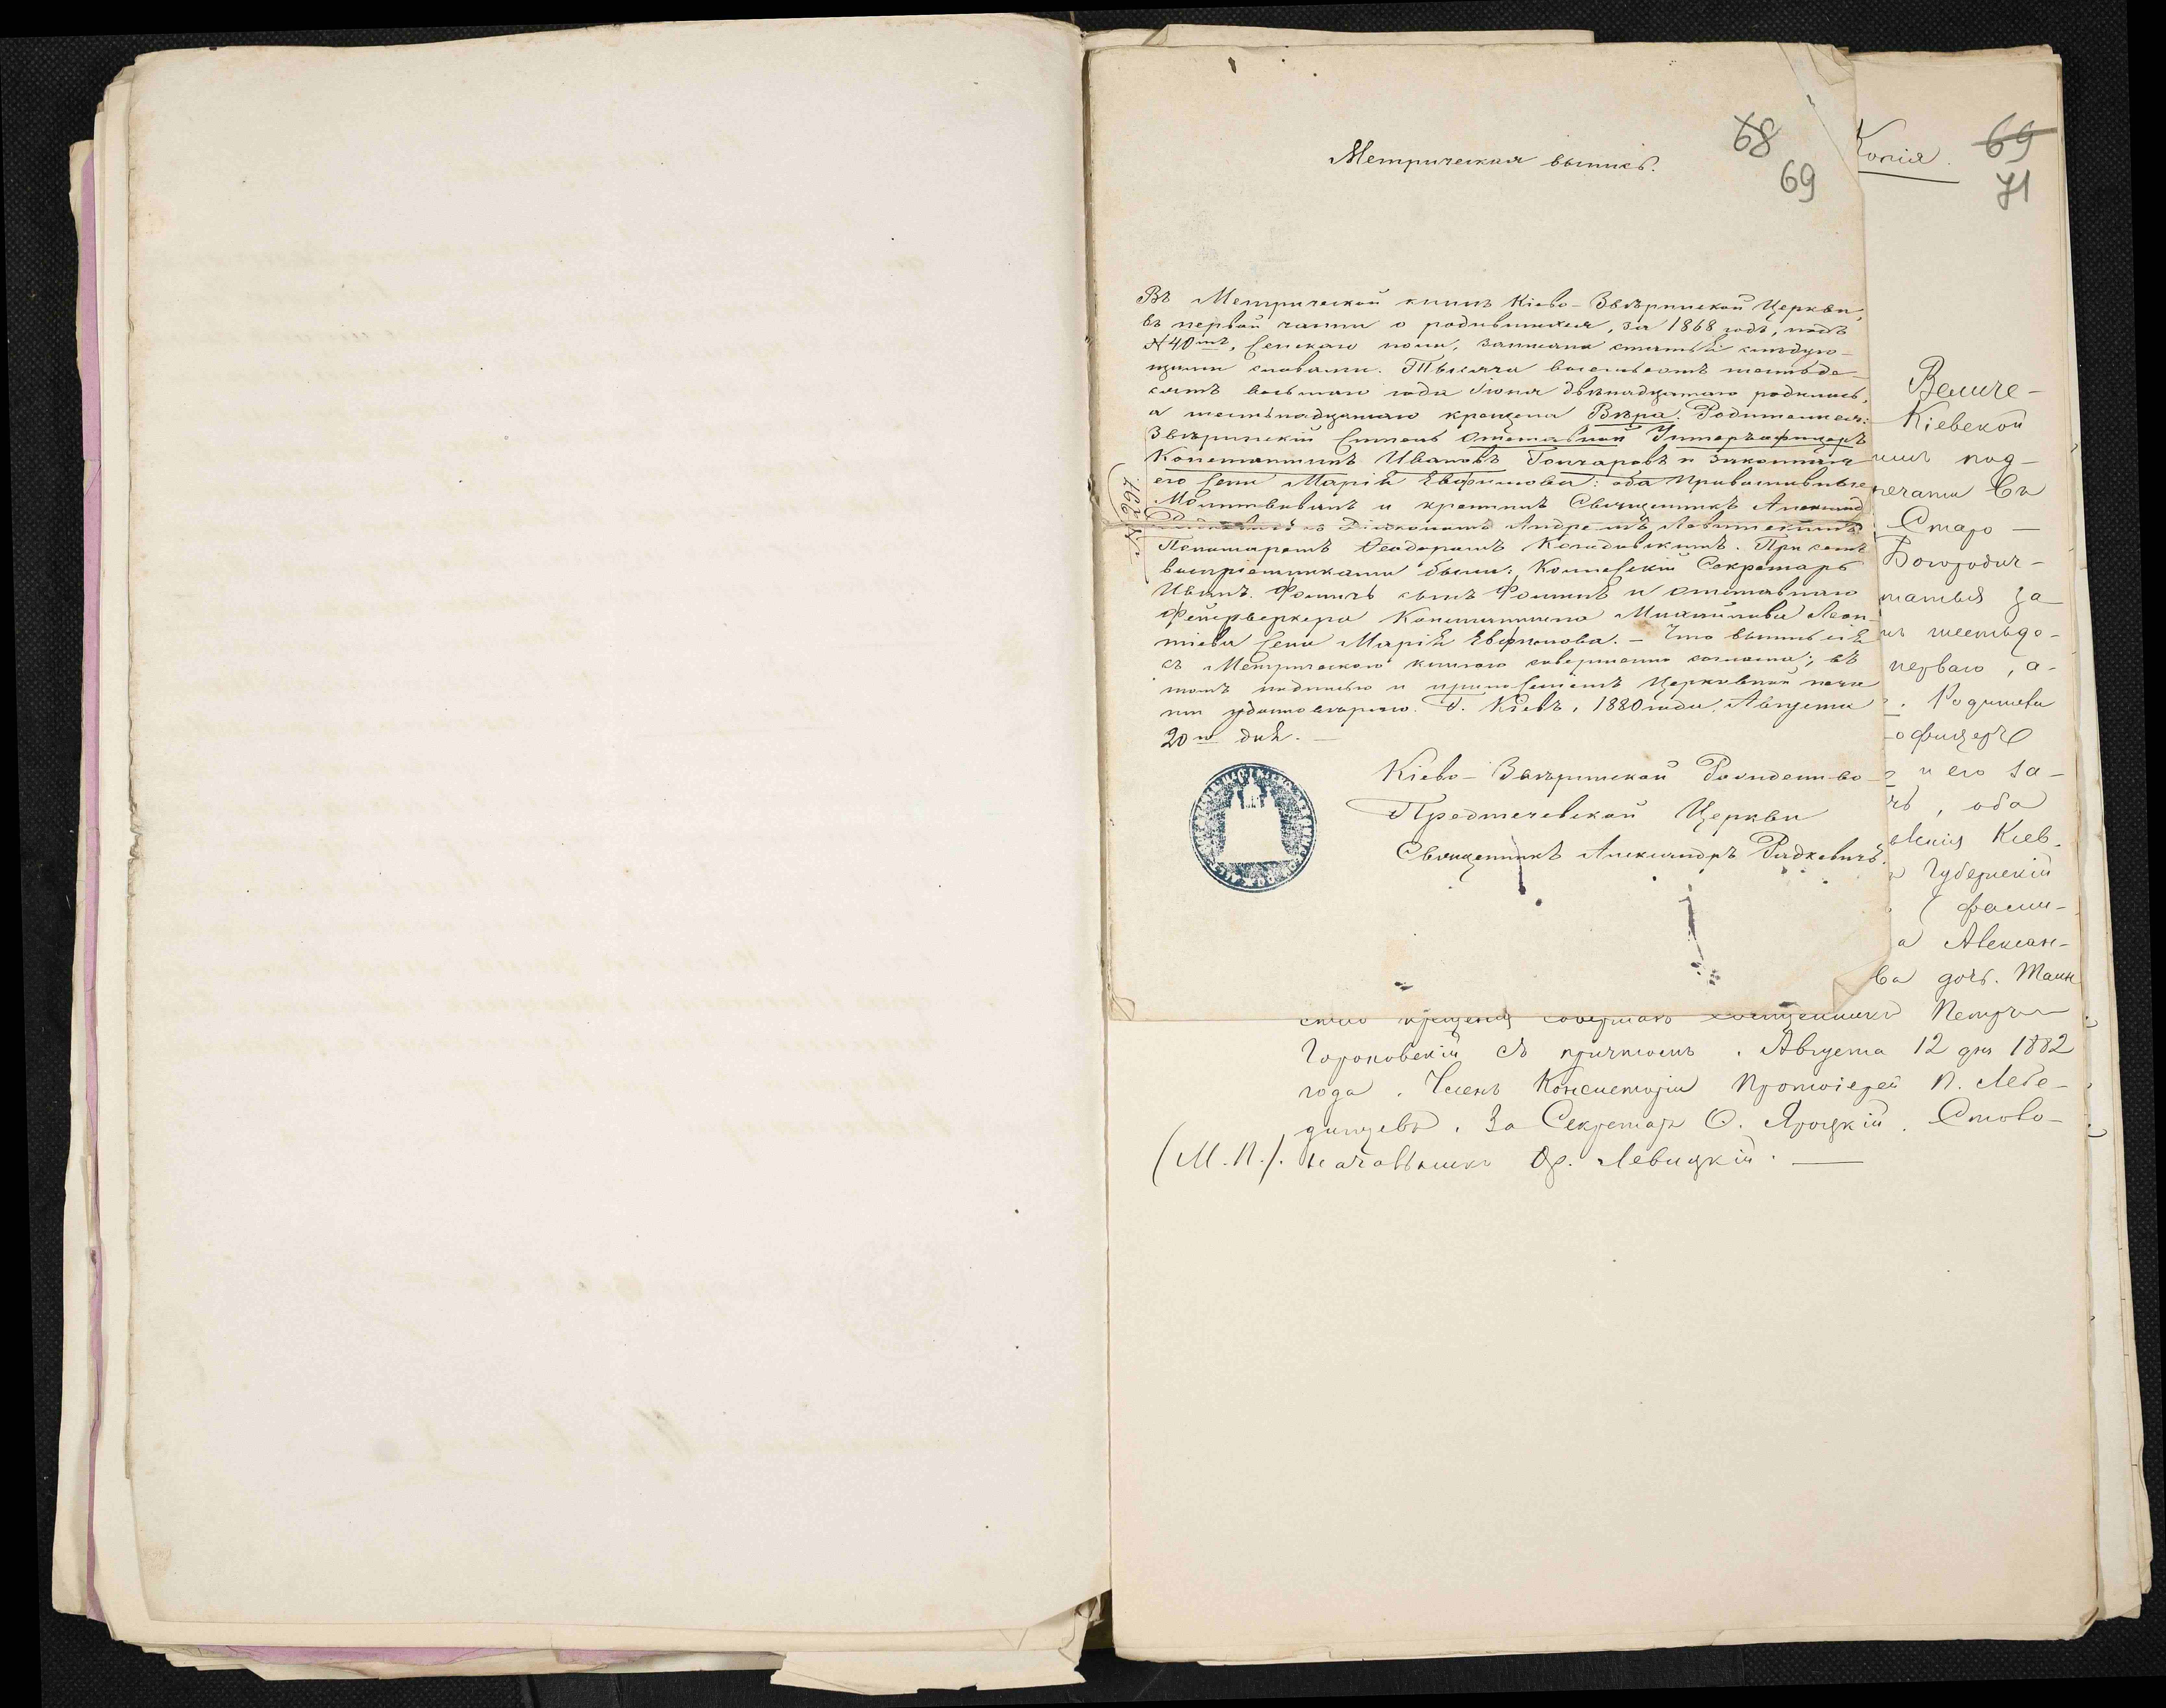 68
69
Метрическая выпись.
Въ Метрической книгѣ Кіево-Звѣринской Церкви,
въ первой части о родившихся, за 1868 годъ, подъ
№ 40мъ, женскаго пола, записана статья слѣдую-
щими словами. Тысяча восемьсотъ шестьде-
сятъ восьмаго года Іюня двѣнадцатаго родилась,
а шестьнадцатаго крещена Вѣра. Родители ея:
Звѣринскій житель отставной Унтеръ-офицеръ
Константинъ Ивановъ Гончаровъ и законная
его жена Марія Евфимова: оба Православные
Молитвовалъ и крестилъ Священникъ Александ
съ Діакономъ Андреемъ
Пономаремъ Ѳеодоромъ При семъ
воспріемниками были: Коллежскій Секретарь
Иванъ Фоминъ и отставнаго
Фейерверкера Константина Михайлова Леон-
тіева жена Марія Евфимова. – Что выпись сія
съ Метрическою книгою совершенно согласна; въ
томъ подписью и приложеніемъ Церковной печа
ти удостовѣряю. Г. Кіевъ, 1880 года, Августа
20го дня. —
Кіево-Звѣринской Рождество-
Предтечевской Церкви
Священникъ Александръ Радкевичъ.
Копія.
69
71
Величе-
Кіевской
под-
печати въ
Старо-
Богородич-
статья за
шестьде-
перваго, а-
Родители
офицеръ
и его за-
оба
Кіев.
Губернскій
(фами-
а Алексан-
ва дочь. Таин
ство крещенія совершалъ священникъ Петръ
Гороновскій съ причтомъ. Августа 12 дня 1882
года. Членъ Консисторіи Протоіерей П. Лебе-
динцевъ. За Секретаря О. Яроцкій. Столо-
(М.П.). начальникъ Ор. Левицкій. —